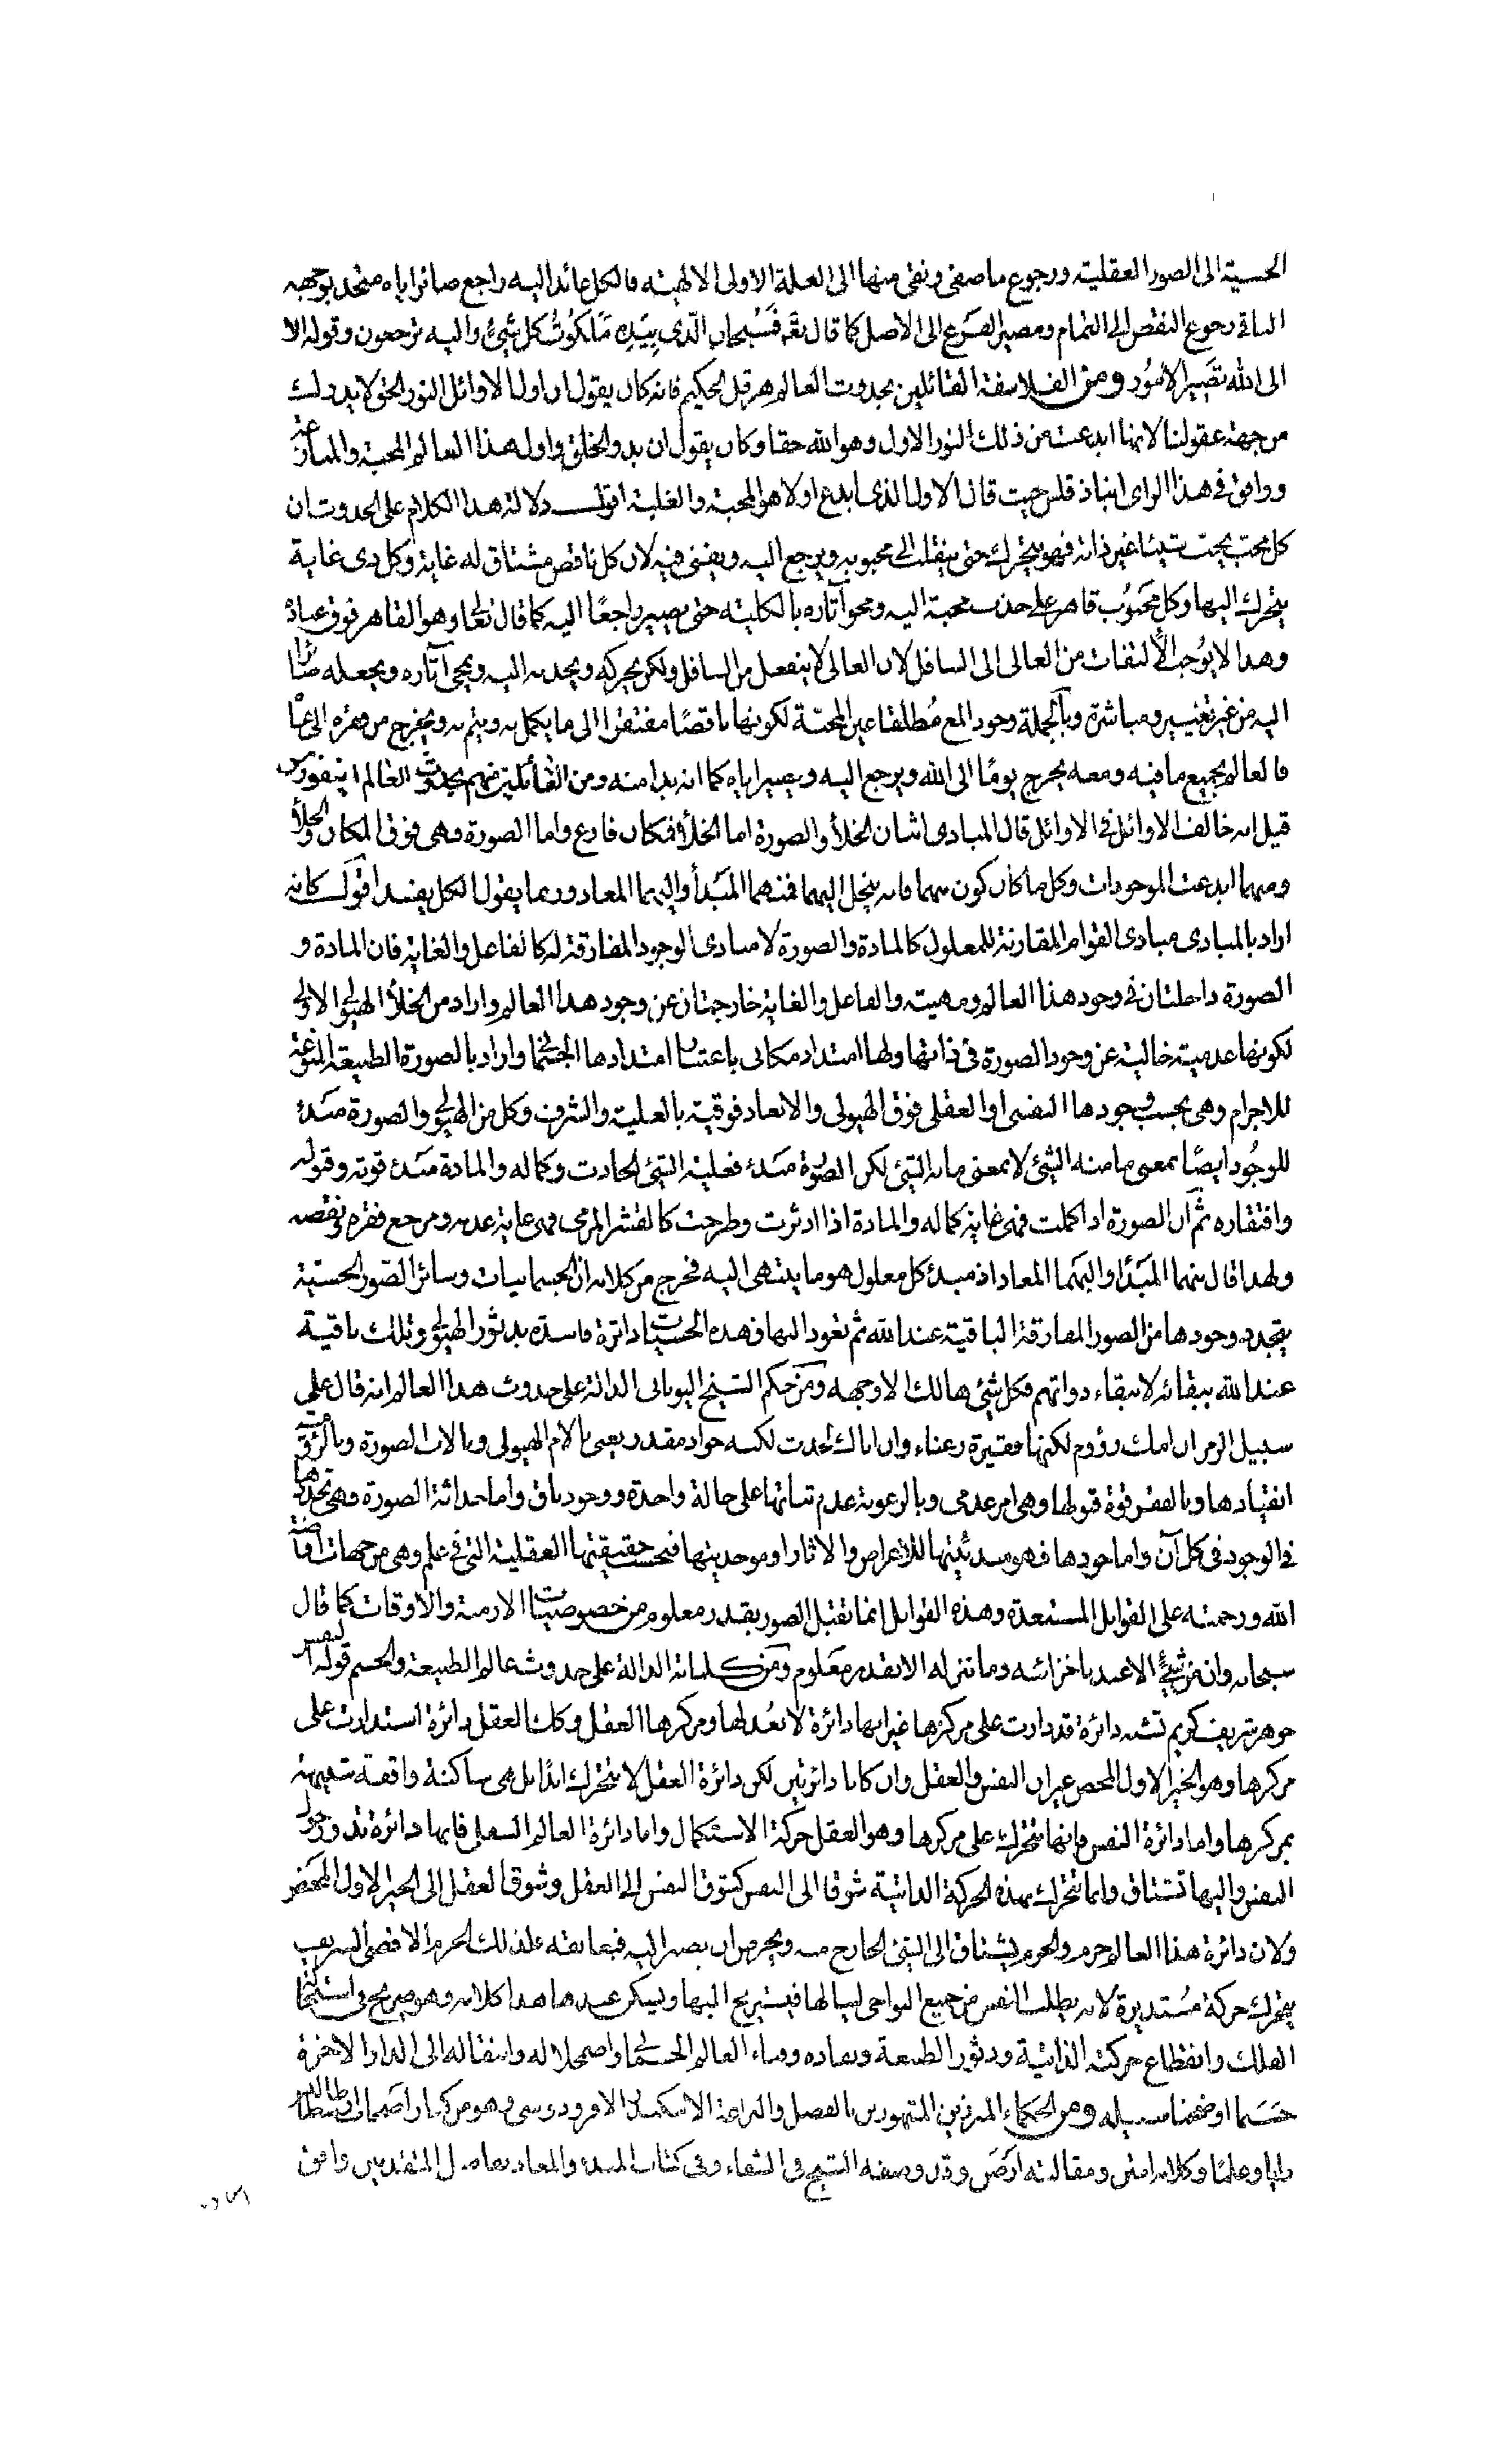 الحسية الى الصور العقلية ورجوع ما صفى ونقى منها الى العلة الاولى الالهية فالكل عائد اليه راجع صائرا اياه متحد بوجهه
الباقى رجوع النقص الى التمام ومصير الفرع الى الاصل كما قال تع فَسُبحان الّذى بِيَدِه مَلكوُتُ كل شَىءٍ واليه ترجعون وقوله الا
الى الله تَصَير الامُوُر ومن الفلاسفة القائلين بحدوث العالم هرقل الحكيم فانه كان يقول ان اول الاوائل النور الحق لا يدرك
من جهة عقولنا لانها ابدعت من ذلك النور الاول وهو الله حقا وكان يقول ان بدو الخلق واول هذا العالم المحبة والمنازعة
ووافق فى هذا الراى انباذقلس حيث قال الاول الذى ابدع اولا هو المحبة والغلبة اقول دلالة هذا الكلام على الحدوث ان
كل محب يحب شيئا غير ذاته فهو يتحرك حتى ينقلب الى محبوبه ويرجع اليه ويفنى فيه لان كل ناقص مشتاق له غاية وكل ذى غاية
يتحرك اليها وكل محبَوُب قاهر على جذب محبه اليه ومحو آثاره بالكلية حتى يصير راجعًا اليه كما قال تعالى وهو القاهر فوق عباده
وهذا لا يوُجب الألتفات من العالى الى السافل لان العالى لا ينفعل من السافل ولكن يحركه ويجذبه اليه ويمحى آثاره ويجعله صائرا
اليه من غير تغيير ومباشرة وبالجملة وجود المع مُطلقا عين المحبّة لكونها ناقصًا مفتقرا الى ما يكمل به ويتم به ويخرج من فقره الى غنا
فالعالم بجميع ما فيه ومعه يخرج يومًا الى الله ويرجع اليه ويصير اياه كما انه بدا منه ومن القائلين منهم بحدوث العالم ابيقورس
قيل انه خالف الاوائل فى الاوائل قال المبادى اثنان الخلأ والصورة اما الخلأ فمكان فارغ واما الصورة فهى فوق المكان والخلأ
ومنهما ابدعت الموجودات وكل ما كان كون منهما فانه ينحل اليهما فمنهما المَبْدأ واليهما المعاد وربما يقول الكل يفسد اقول كانه
اراد بالمبادى مبادى القوام المقارنة للمعلول كالمادة والصورة لا مبادى الوجود المفارقة له كالفاعل والغاية فان المادة و
الصورة داخلتان فى وجود هذا العالم ومهيته والفاعل والغاية خارجتان عن وجود هذا العالم واراد من الخلأ الهيولى الاولى
لكونها عدمية خالية عن وجود الصورة فى ذاتها ولها امتداد مكانى باعتبار امتدادها الجسمانى واراد بالصورة الطبيعة المنوعة
للاجرام وهى بحسب وجودها النفسى او العقلى فوق الهيولى والابعاد فوقية بالعلية والشرف وكل من الهيولى والصورة مبَدء
للوجوُد ايضًا بمعنى ما منه الشئ لا بمعنى ما به الشئ لكن الصورة مبَدء فعلية الشئ الحادث وكماله والمادة مبَدء قوته وقوله
وافتقاره ثم ان الصورة اذا كملت فهى غاية كماله والمادة اذا دثرت وطرحت كالقشر المرمى فهى غاية عدمه ومرجع فقره ونقصه
ولهذا قال منهما المَبَدأ واليهما المعاد اذ مبدء كل معلول هو ما ينتهى اليه فخرج من كلامه ان الجسمانيات وسائر الصّور الحسّية
يتجدد وجودها من الصور المفارقة الباقية عند الله ثم تعود اليها فهذه الحسيات داثرة فاسدة بدثور الهيولى وتلك باقية
عند الله ببقائه لا ببقاء ذواتهم فكل شئ هالك الا وجهه ومن حكم الشيخ اليونانى الدالة على حدوث هذا العالم انه قال على
سبيل الرمز ان امك رؤوم لكنها فقيرة رعناء وان اباك لحدث لكنه جواد مقدر يعنى بالام الهيولى وبالاب الصورة وبالرؤفة
انقيادها وبالفقر قوة قبولها وهى امر عدمى وبالرعونة عدم ثباتها على حالة واحدة ووجود باق واما حداثة الصورة فهى تجددها
فى الوجود فى كل آن واما جودها فهو مبدئيتها للاعراض والاثار او موجديتها فبحسب حقيقتها العقلية التى فى علم وهى من جهات افاضة
الله ورحمته على القوابل المستعدة وهذه القوابل انما تقبل الصور بقدر معلوم من خصوصيات الازمنة والاوقات كما قال
سبحانه وان من شئ الا عندنا خزائنه وما ننزله الا بقدر معلوم ومن كلماته الدالة على حدوث عالم الطبيعة والجسم قوله النفس
جوهر شريف كريم تشبه دائرة قد دارت على مركزها غير انها دائرة لا بعُد لها ومركزها العقل وكذا العقل دائرة استدارت على
مركزها وهو الخير الاول المحض غير ان النفس والعقل وان كانا دائرتين لكن دائرة العقل لا يتحرك ابدًا بل هى ساكنة واقفة شبيهة
بمركزها واما دائرة النفس فانها تتحرك على مركزها وهو العقل حركة الاستكمال واما دائرة العالم السفلى فانها دائرة تدور حول
النفس واليها تشتاق وانما تتحرك بهذه الحركة الذاتية شوقا الى النفس كشوق النفس الى العقل وشوق العقل الى الخير الاول المحض
ولان دائرة هذا العالم جرم والجرم يشتاق الى الشئ الخارج منه ويحرص ان يصير اليه فيعانقه فلذلك الجرم الاقصى الشريف
يتحرك حركة مُستديرة لانه يطلب النفس من جميع النواحى لينالها فيستريح اليها ويسكن عندها هذا كلامه وهو صريح فى استكمال
الفلك وانقطاع حركته الذاتية ودثور الطبيعة ونفاده وفناء العالم الجسمانى واضمحلاله وانتقاله الى الدار الاخرة
حَسَبما اوضحنا سبيله ومن الحكماء المبرزين المشهورين بالفضل والبراعة الاسكندر الافروديسى وهو من كبار اصحاب ارسطاطاليس
رايا وعلمًا وكلامه امتن ومقالته ارصَن وقد وصفه الشيخ فى الشفاء وفى كتاب المبدء والمعاد بفاضل المتقدمين وافق